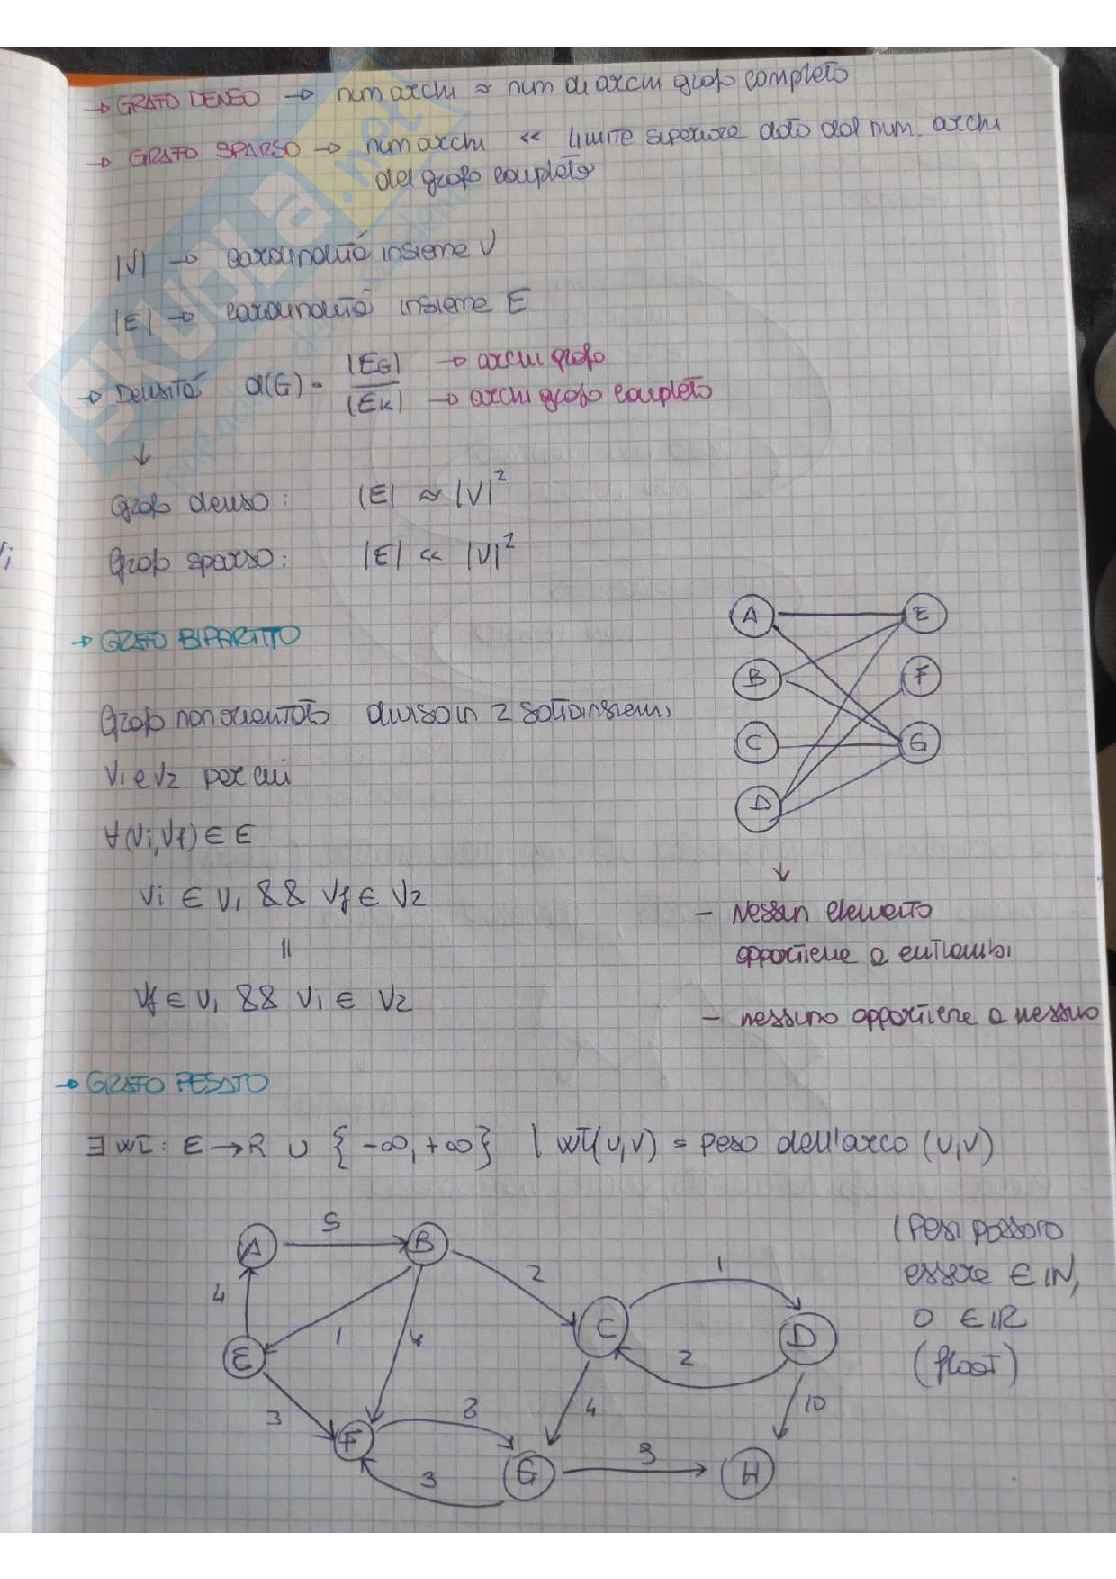 → GRAFO DENSO → num archi ≈ num di archi grafo completo
→ GRAFO SPARSO → num archi << limite superiore dato dal num. archi
del grafo completo
|V| → cardinalità insieme V
|E| → cardinalità insieme E
→ Densità d(G) = |EG| / |EK|
→ archi grafo
→ archi grafo completo
↓
Grafo denso: |E| ≈ |V|²
Grafo sparso: |E| << |V|²
→ GRAFO BIPARTITO
Grafo non orientato diviso in 2 sottoinsiemi
V1 e V2 per cui
∀(Vi,Vf) ∈ E
Vi ∈ V1 && Vf ∈ V2
||
Vf ∈ V1 && Vi ∈ V2
A E
B F
C G
D
↓
- Nessun elemento
appartiene a entrambi
- nessuno appartiene a nessuno
→ GRAFO PESATO
∃ wt: E → R ∪ {-∞, +∞} | wt(u,v) = peso dell'arco (u,v)
I pesi possono
essere ∈ IN,
o ∈ IR
(float)
A 5 B
4 2 1
E 1 4 C 2 D
3 F 3 4 10
3 G 3 H
SKUOLA.net